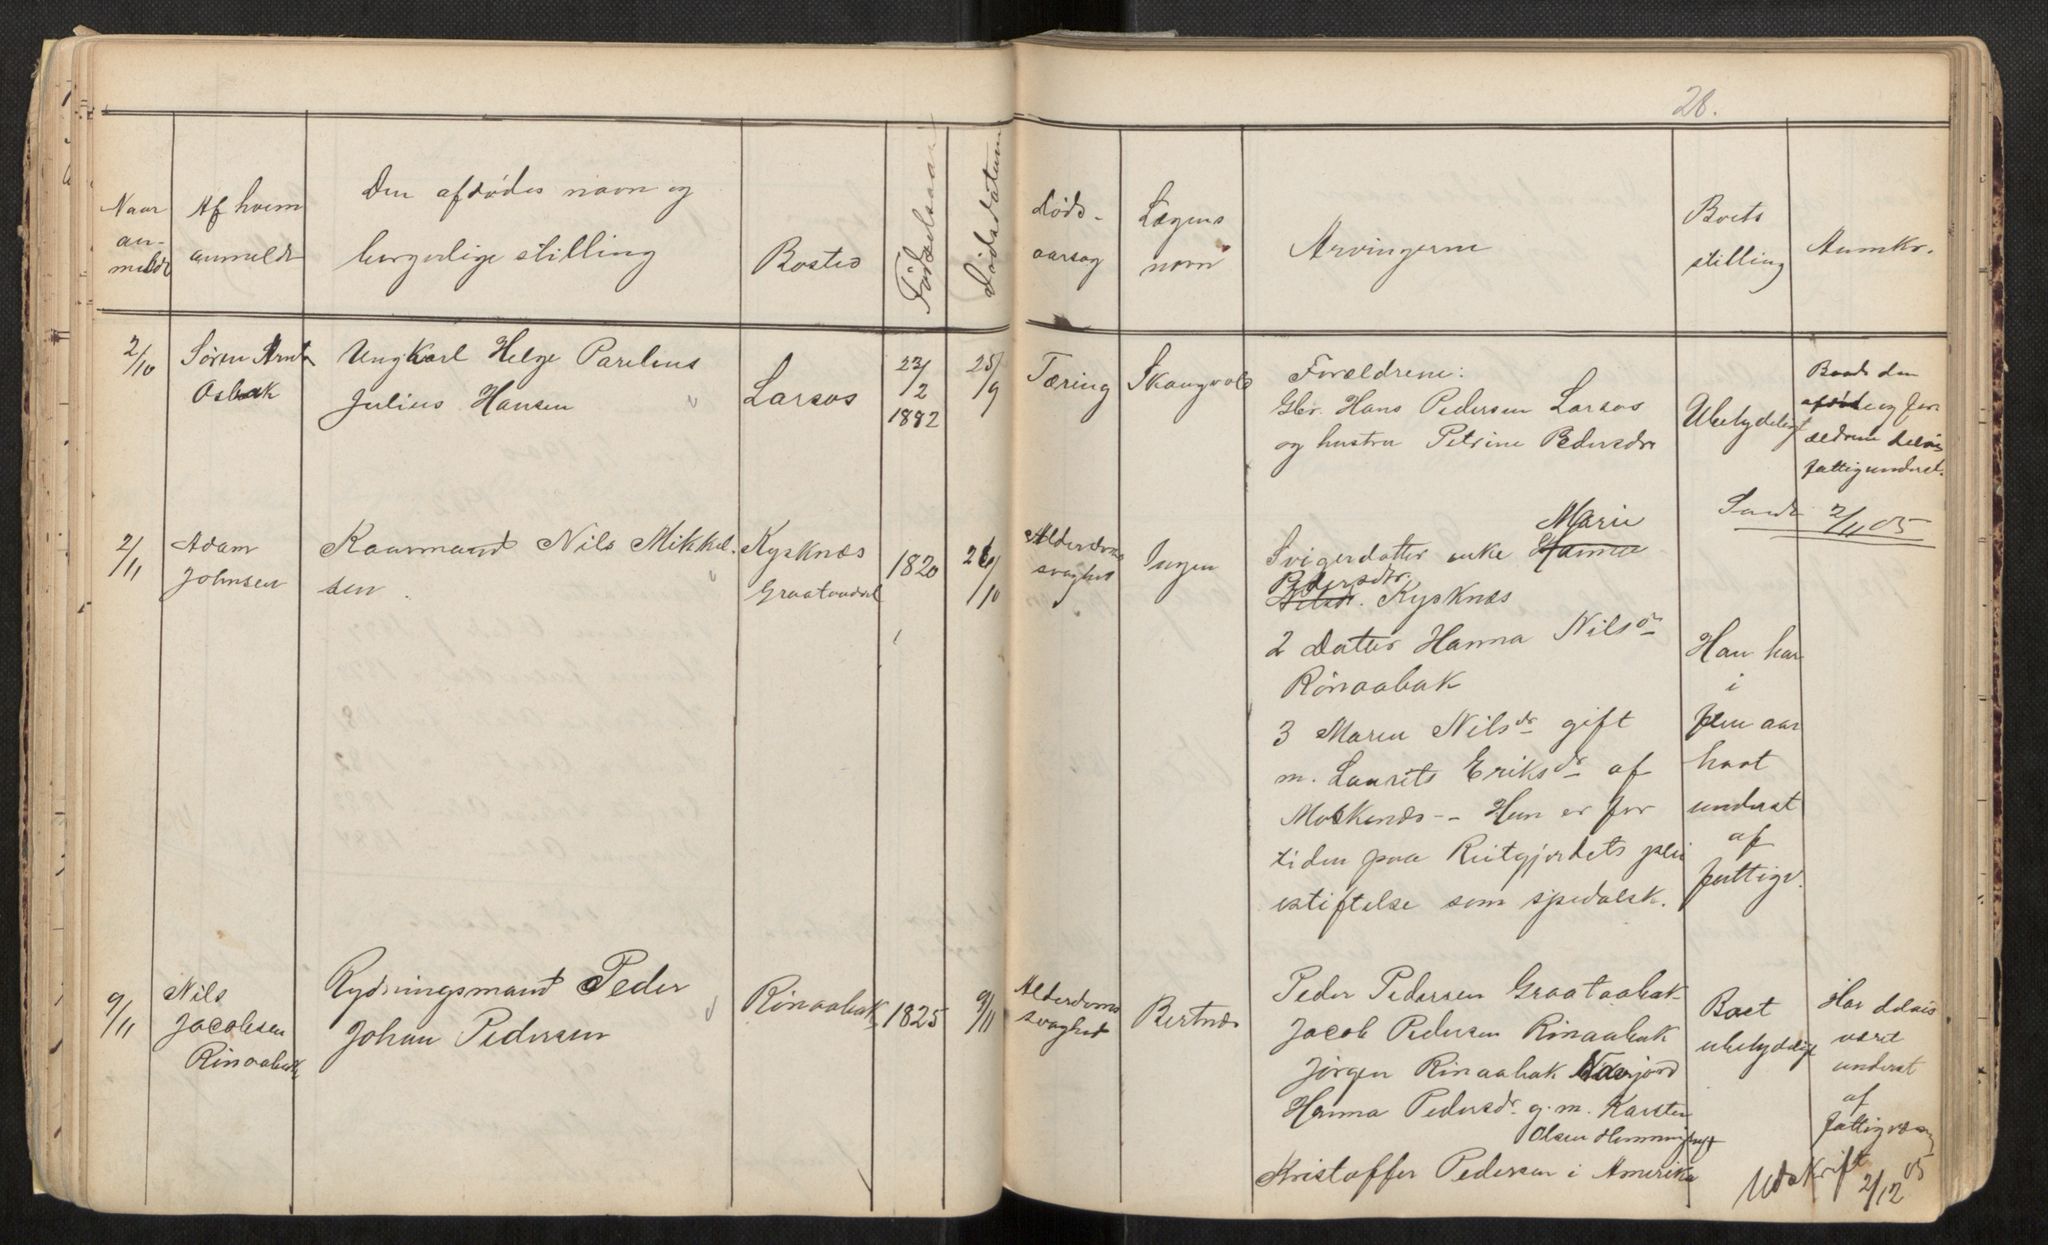 28.
Naar
an-
meldt
Af hvem
anmeldt
Den afdødes navn og
borgerlige stilling
Bosted
Fødselsaar
Dødsdatum
Døds-
aarsag
Lægens
navn
Arvingerne
Boets
stilling
Anmkr.
2/10
Søren Arnt
Osbak
Ungkarl Helge Parelius
Julius Hansen
Larsos
23/2
1882
25/9
Tæring
Skaugvold
Forældrene:
Gbr. Hans Pedersen Larsos
og hustru Petrine Pedersdr
Ubetydeligt
Baade den
afdøde og for
ældrene delvis
fattigunderst.
Sendt 2/11 05
2/11
Adam
Johnsen
Kaarmand Nils Mikkel.
sen.
Kysknæs
Graataadal
1820
26/10
Alderdoms
svaghed
Ingen
Marie
Svigerdatter enke Hanna
Pedersdr.
Nilsdr. Kysknæs
2 Datter Hanna Nilsdr
Rönaabak
3 Maren Nilsdr gift
m. Laurits Eriksdr af
Moskenæs -- Hun er for
tiden paa Reitgjerdets plei
estiftelse som spedalsk.
Han har
i
flere aar
havt
underst
af
fattigv.
9/11
Nils
Jacobsen
Rönaabak
Rydningsmand Peder
Johan Pedersen
Rönaabak
1825
9/11
Alderdoms
svaghed
Bertnæs
Peder Pedersen Graataabak
Jacob Pedersen Rönaabak
Jørgen Rönaabak
Hanna Pedersdr g. m. Karsten
Olsen
Kristoffer Pedersen i Amerika
Boet
ubetydeligt
Har delvis
været
underst
af
fattigvæs
Udskrift 2/12 05